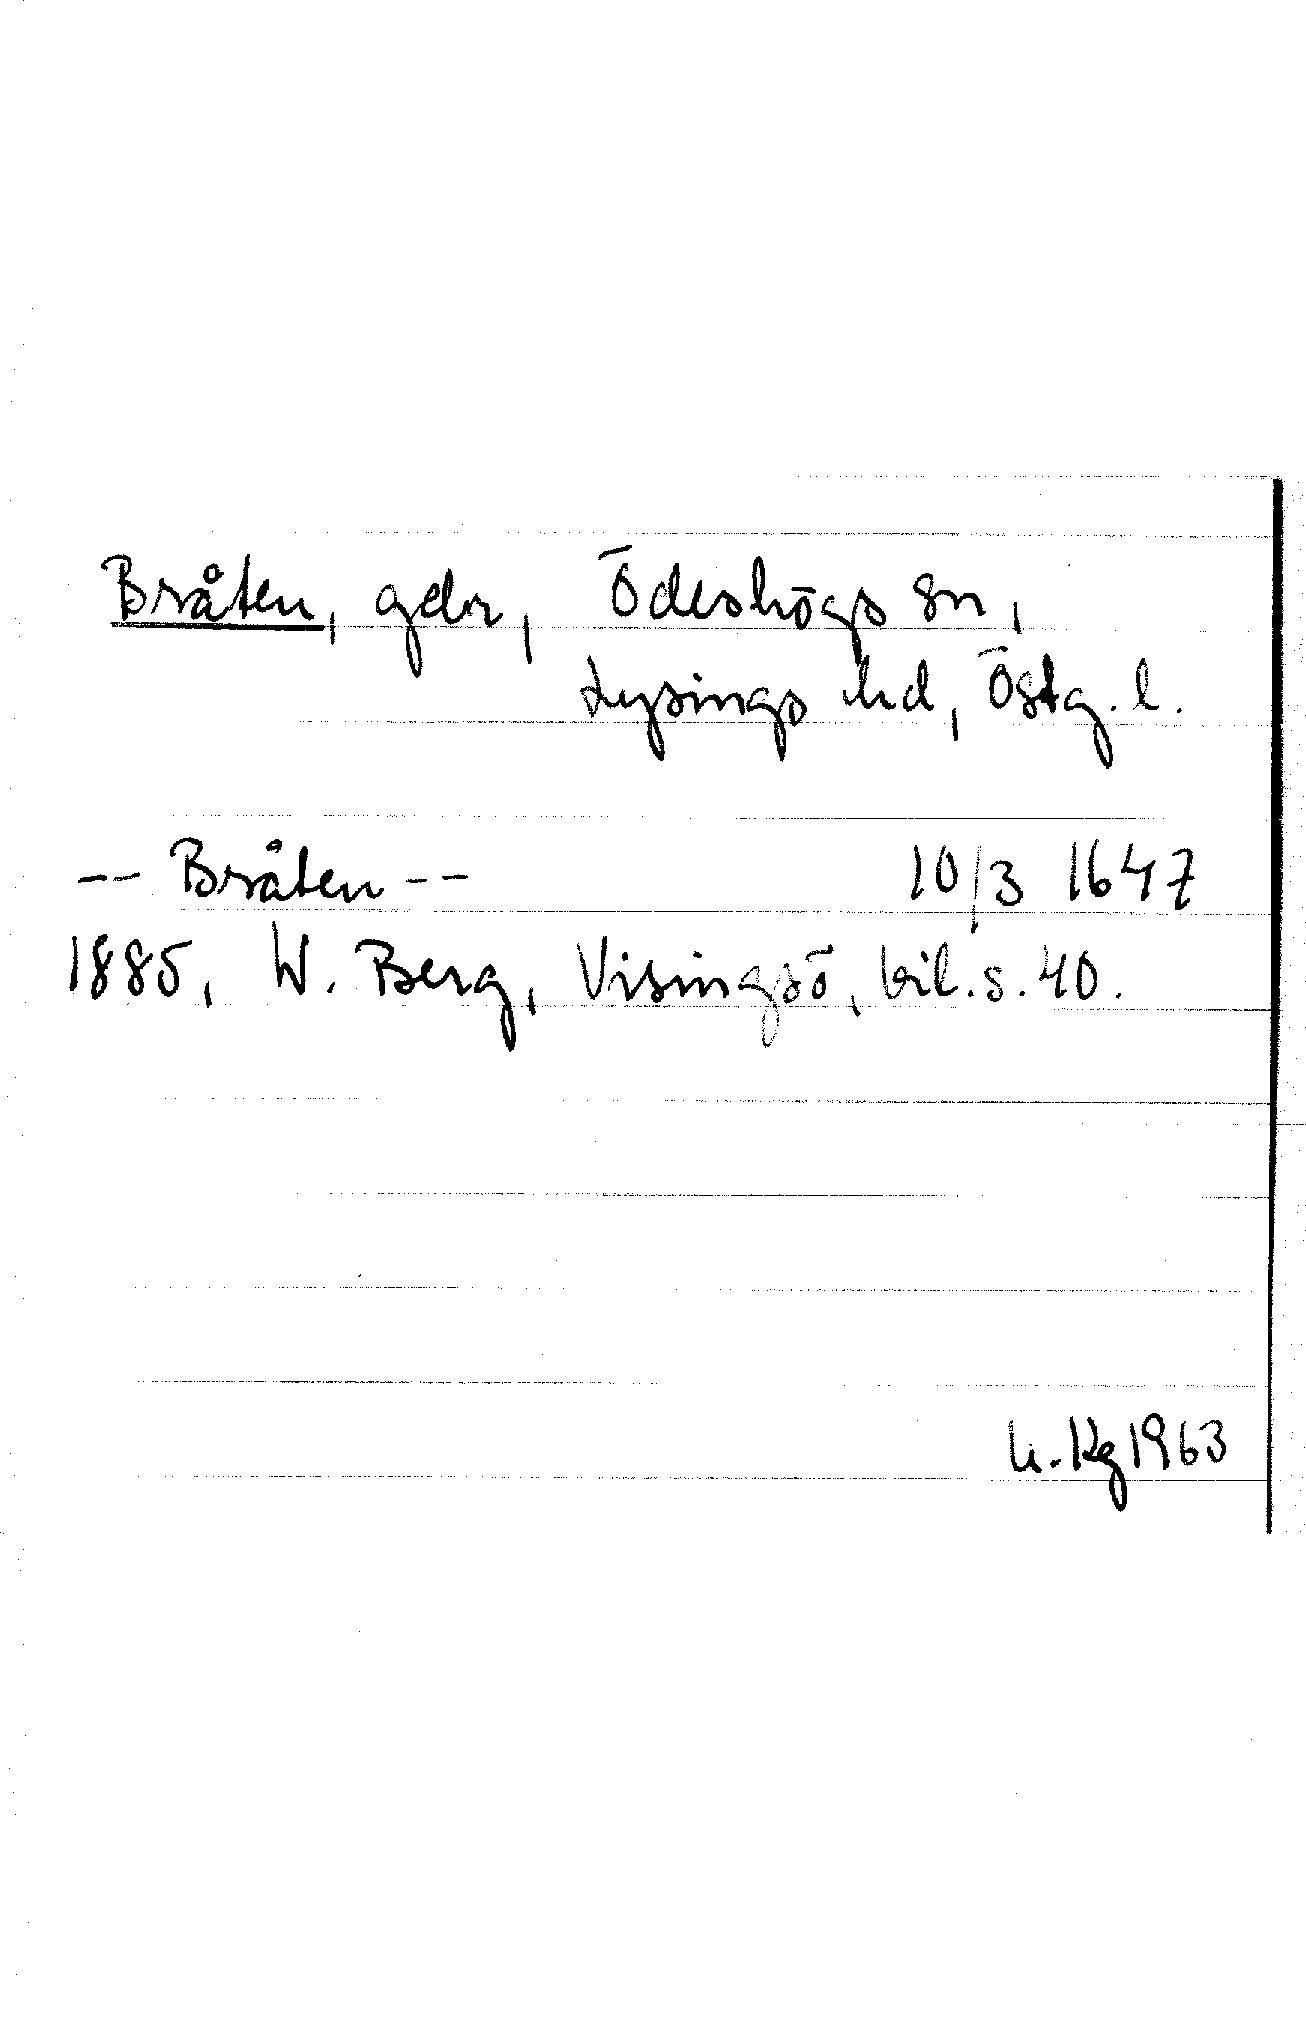 Bråten, gdr, Ödeshögs sn,
Lysings hd, Östg. l.
-- Bråten -- 10/3 1647
1885, W. Berg, Visingsö, bil. s. 40.
H. Kg 1963